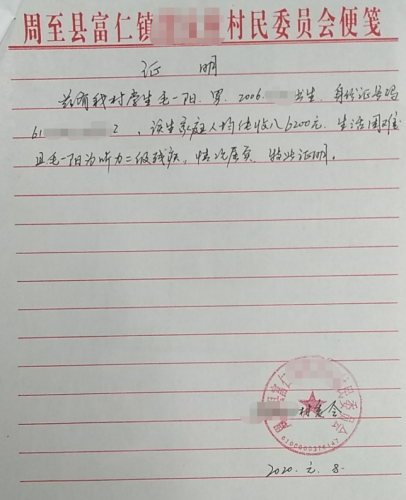 周至县富仁镇 村民委员会便笺
证 明
兹有我村学生毛一阳，男，2006. 出生，身份证号码
61 2，该生家庭人均纯收入6200元，生活困难
且毛一阳为听力二级残疾，情况属实，特此证明。
县富仁 民委员会
村委会
6100000376147
2020.元.8.